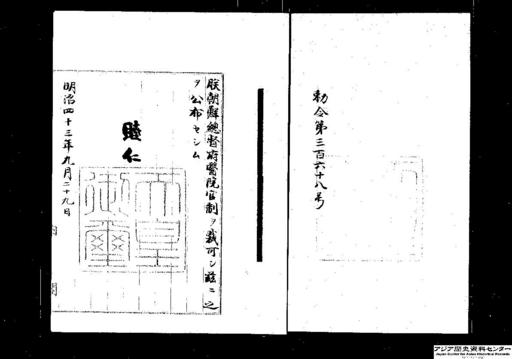 勅令第三百六十八号
朕朝鮮總督府醫院官制ヲ裁可シ茲ニ之
ヲ公布セシム
睦仁
天皇御璽
明治四十三年九月二十九日
内
閣
アジア歴史資料センター
Japan Center for Asian Historical Records